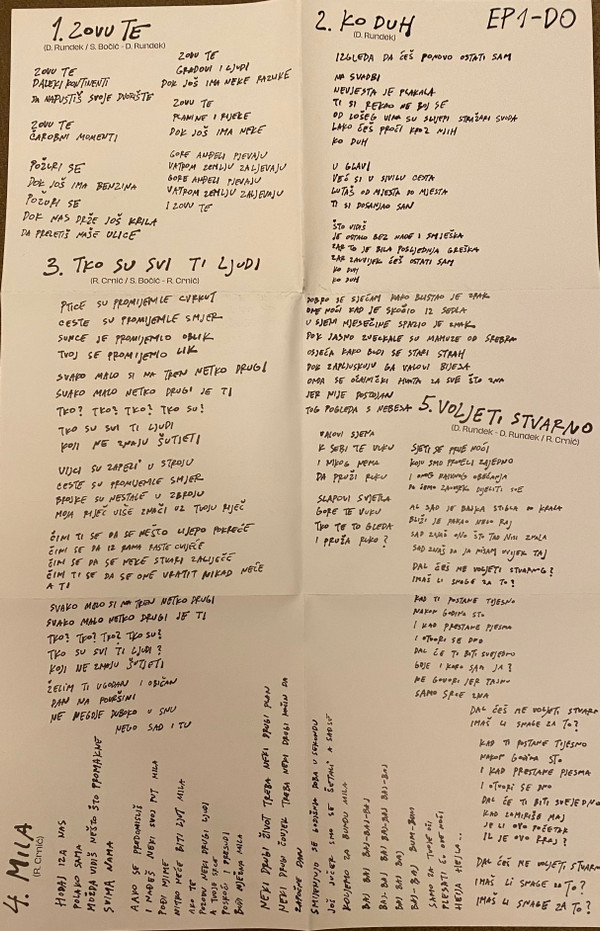 1. ZOVU TE
(D. Rundek / S. Bočić - D. Rundek)
ZOVU TE
DALEKI KONTINENTI
DA NAPUSTIŠ SVOJE DVORIŠTE
ZOVU TE
ČAROBNI MOMENTI
POŽURI SE
DOK JOŠ IMA BENZINA
POŽURI SE
DOK NAS DRŽE JOŠ KRILA
DA PRELETIŠ NAŠE ULICE
ZOVU TE
GRADOVI I LJUDI
DOK JOŠ IMA NEKE RAZLIKE
ZOVU TE
PLANINE I RIJEKE
DOK JOŠ IMA NEKE
GORE ANĐELI PJEVAJU
VATROM ZEMLJU ZALJEVAJU
GORE ANĐELI PJEVAJU
VATROM ZEMLJU ZALJEVAJU
I ZOVU TE
2. KO DUH
(D. Rundek)
EP1-DO
IZGLEDA DA ĆEŠ PONOVO OSTATI SAM
NA SVADBI
NEVJESTA JE PLAKALA
TI SI REKAO NE BOJ SE
OD LOŠEG VINA SU SLIJEPI STRAŽARI SVUDA
LAKO ĆEŠ PROĆI KROZ NJIH
KO DUH
U GLAVI
VEĆ SI U SIVILU CESTA
LUTAŠ OD MJESTA DO MJESTA
TI SI DOSANJAO SAN
ŠTO VIDIŠ
JE OSTALO BEZ NADE I SMJEŠKA
ZAR TO JE BILA POSLJEDNJA GREŠKA
ZAR ZAUVIJEK ĆEŠ OSTATI SAM
KO DUH
KO DUH
KO DUH
3. TKO SU SVI TI LJUDI
(R. Crnić / S. Bočić - R. Crnić)
PTICE SU PROMIJENILE CVRKUT
CESTE SU PROMIJENILE SMJER
SUNCE JE PROMIJENILO OBLIK
TVOJ SE PROMIJENIO LIK
SVAKO MALO SI NA TREN NETKO DRUGI
SVAKO MALO NETKO DRUGI JE TI
TKO? TKO? TKO? TKO SU?
TKO SU SVI TI LJUDI
KOJI NE ZNAJU ŠUTJETI
VIJCI SU ZAPELI U STROJU
CESTE SU PROMIJENILE SMJER
BROJKE SU NESTALE U ZBROJU
MOJA RIJEČ VIŠE ZNAČI UZ TVOJU RIJEČ
ČINI TI SE DA SE NEŠTO LIJEPO POKREĆE
ČINI SE DA IZ RAMA RASTE CVIJEĆE
ČINI SE DA SE NEKE STVARI ZALIJEČE
ČINI TI SE DA SE ONE VRATIT NIKAD NEĆE
A TI
SVAKO MALO SI NA TREN NETKO DRUGI
SVAKO MALO NETKO DRUGI JE TI
TKO? TKO? TKO? TKO SU?
TKO SU SVI TI LJUDI?
KOJI NE ZNAJU ŠUTJETI
ŽELIM TI UGODAN I OBIČAN
DAN NA POVRŠINI
NE NEGDJE DUBOKO U SNU
NEGO SAD I TU
4. MILA
(R. Crnić)
HODAJ IZA NAS
POLAKO SAMA
MOŽDA VIDIŠ NEŠTO ŠTO PROMAKNE
SVIMA NAMA
A AKO SE PREDOMISLIŠ
I NAĐEŠ NEKI SVOJ PUT MILA
POĐI MIRNE
NITKO NEĆE BITI LJUT MILA
AKO TE
POZOVU NEKI DRUGI LJUDI
A TVOJE SRCE
POSKOČI I PRESUDI
BUDI NJEŽNA MILA
NEKI DRUGI ŽIVOT TREBA NEKI DRUGI PLAN
NEKI DRUGI ČOVJEK TREBA NEKI DRUGI NAČIN DA
ZAPOČNE DAN
SMJENJUJU SE GODIŠNJA DOBA U SEKUNDU
JOŠ JUČER SMO SE ŠETALI A SAD SE
KOLJEMO ZA BUNDU MILA
BAJ BAJ BAJ-BAJ-BAJ
BAJ BAJ BAJ-BAJ BAJ-BAJ
BAJ BAJ BAJ
BAJ-BAJ BUM-BUM
SAMO ZA TVOJE OČI
PLESATI ĆU OVE NOĆI
HEJJA HEJJA..
DOBRO SE SJEĆAM KAKO BLISTAO JE ZRAK
ONE NOĆI KAD JE SKOČIO IZ SEDLA
U SJENI MJESEČINE SPAZIO JE ZNAK
DOK JASNO ZVECKALE SU MAMUZE OD SREBRA
OSJEĆA KAKO BUDI SE STARI STRAH
DOK ZAPLJUSKUJU GA VALOVI BIJESA
ONDA SE OČAJNIČKI HVATA ZA SVE ŠTO ZNA
JER NIJE DOSTOJAN
TOG POGLEDA S NEBESA
5. VOLJETI STVARNO
(D. Rundek - D. Rundek / R. Crnić)
VALOVI SJENA
K SEBI TE VUKU
I NIKOG NEMA
DA PRUŽI RUKU
SLAPOVI SVJETLA
GORE TE VUKU
TKO TE TO GLEDA
I PRUŽA RUKU?
SJETI SE PRVE NOĆI
KOJU SMO PROVELI ZAJEDNO
I ONOG RAJSKOG OBEĆANJA
DA ĆEMO ZAUVIJEK DIJELITI SVE
AL SAD JE BAJKA STIGLA DO KRAJA
BLIŽI JE PAKAO NEGO RAJ
SAD ZNAŠ ONO ŠTO TAD NISI ZNALA
SAD ZNAŠ DA JA NISAM UVIJEK TAJ
DAL ĆEŠ ME VOLJETI STVARNO?
IMAŠ LI SNAGE ZA TO?
KAD TI POSTANE TIJESNO
NAKON GODINA STO
I KAD PRESTANE PJESMA
I OTVORI SE DNO
DAL ĆE TI BITI SVEJEDNO
GDJE I KOJO SAM JA?
NE GOVORI JER TAJNU
SAMO SRCE ZNA
DAL ĆEŠ ME VOLJETI STVARNO
IMAŠ LI SNAGE ZA TO?
KAD TI POSTANE TIJESNO
NAKON GODINA STO
I KAD PRESTANE PJESMA
I OTVORI SE DNO
DAL ĆE TI BITI SVEJEDNO
KAD ZAMIRIŠE MAJ
JE LI OVO POČETAK
IL JE OVO KRAJ?
DAL ĆEŠ ME VOLJETI STVARNO
IMAŠ LI SNAGE ZA TO?
IMAŠ LI SNAGE ZA TO?